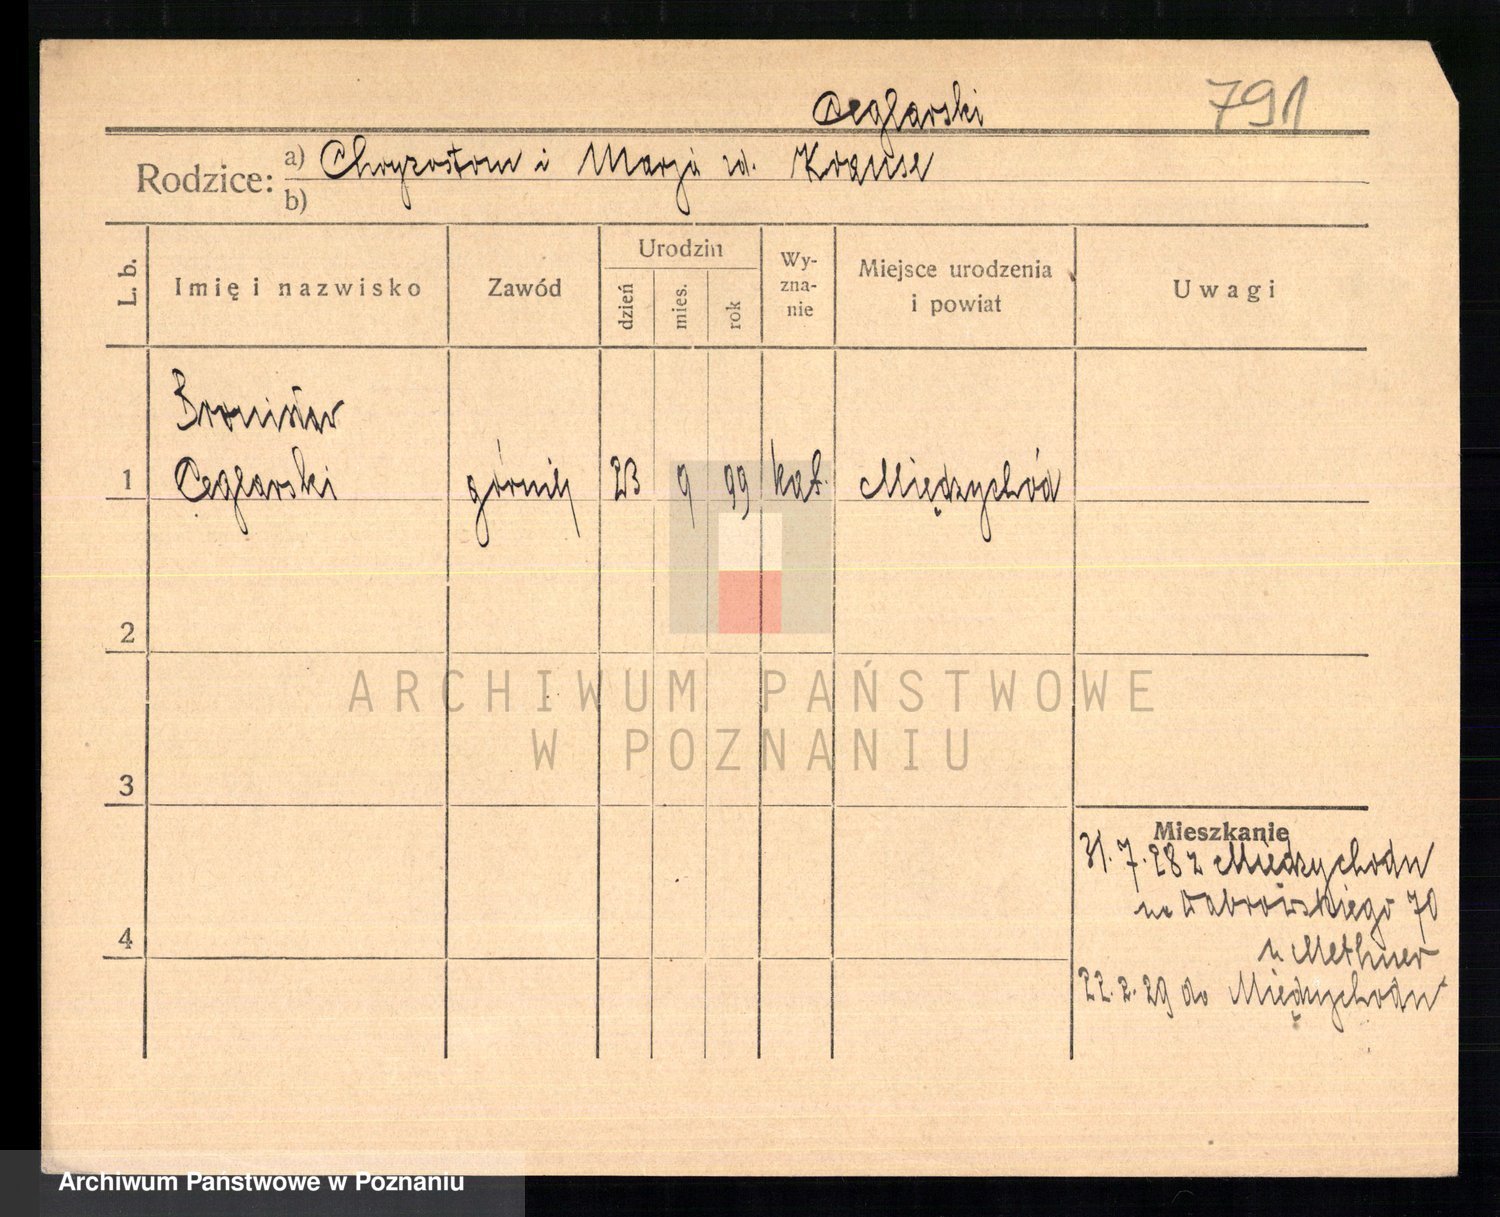 Ceglarski
791
Rodzice: a) Chryzostom i Marja zd. Krause
b)
L. b. Imię i nazwisko Zawód Urodzin dzień mies. rok Wy-zna-nie Miejsce urodzenia i powiat Uwagi
Bronisław
1 Ceglarski górnik 23 9 99 kat. Międzychód
2
ARCHIWUM PAŃSTWOWE
W POZNANIU
3
Mieszkanie
31.7.28 z Międzychodu
na Dąbrowskiego 70
u Methner
4
22.2.29 do Międzychodu
Archiwum Państwowe w Poznaniu